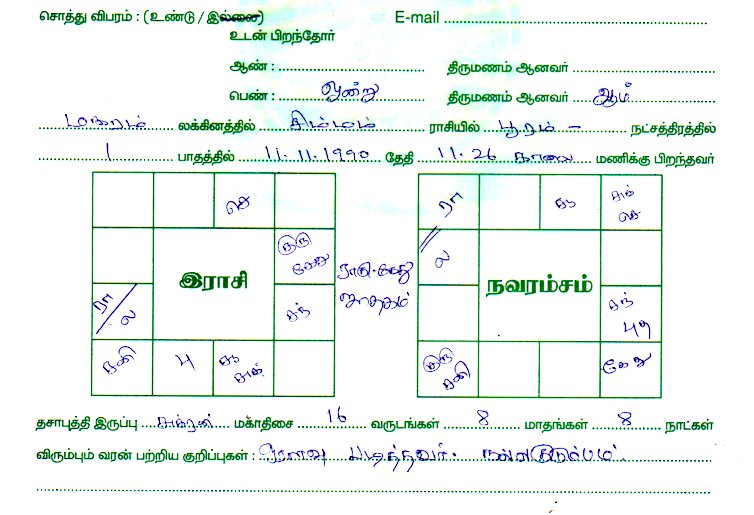 சொத்து விபரம் : (உண்டு / இல்லை) E-mail
உடன் பிறந்தோர்
ஆண் : திருமணம் ஆனவர்
பெண் : ஒன்று திருமணம் ஆனவர் ஆம்
மகரம் லக்கினத்தில் சிம்மம் ராசியில் பூரம் - நட்சத்திரத்தில்
1 பாதத்தில் 11.11.1990 தேதி 11.26 காலை மணிக்கு பிறந்தவர்
செ
குரு கேது
ரா / ல
சந்
சனி பு சூ சுக்
இராசி
ராகு-கேது
ஜாதகம்
ரா சூ சுக் செ
ல
சந் பு
குரு சனி கேது
நவரம்சம்
தசாபுத்தி இருப்பு சுக்ரன் மகாதிசை 16 வருடங்கள் 8 மாதங்கள் 8 நாட்கள்
விரும்பும் வரன் பற்றிய குறிப்புகள் : படித்தவர். நல்லகுடும்பம்